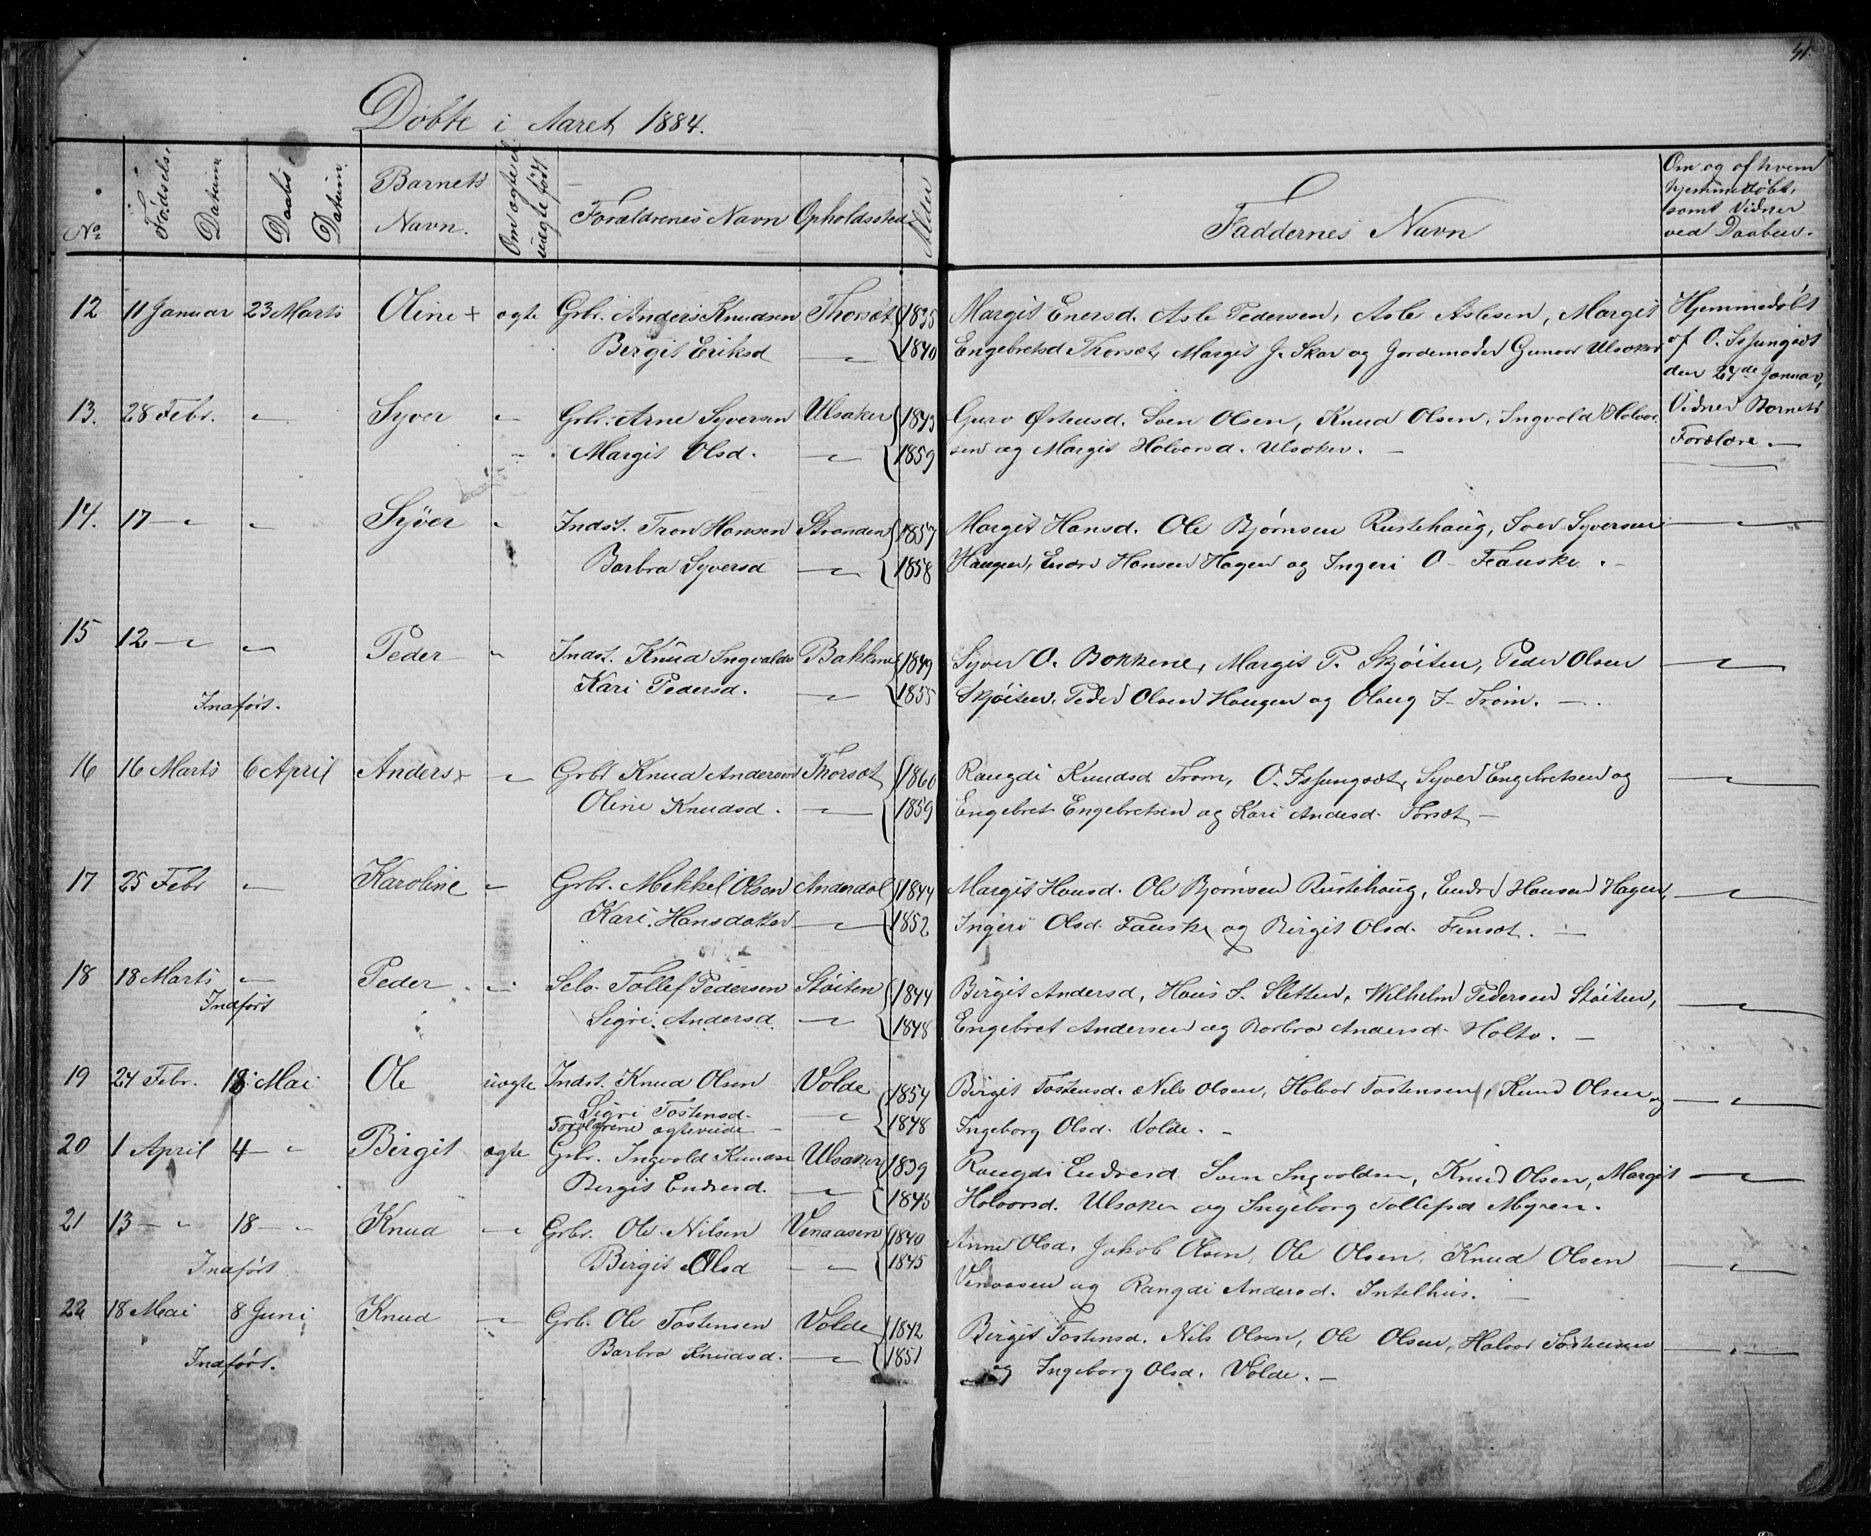 Døbte i Aaret 1884.
No
Fødsels Datum
Daabs Datum
Barnets Navn.
Om ægte el. uægte født
Forældrenes Navn
Opholdssted
Alder
Faddernes Navn
Om og af hvem hjemmedøbt, samt Vidner ved Daaben.
12 11 Januar 23 Marts Oline + ægte Grbr. Anders Knudsen Thorsæt 1835 Margit Enersd. Asle Pedersen, Asle Aslesen, Margit Hjemmedøbt
Birgit Eriksd 〃 1840 Engebretsd Thorsæt, Margit J. Skar og Jordemoder Gunvor Ulsaker af O.
den 27de Januar,
13. 28 Febr. 〃 Syver 〃 Grbr. Arne Syversen Ulsaker 1843 Guro Østensd. Sven Olsen, Knud Olsen, Ingvald Halvor- Vidner Barnets
Margit Olsd. 〃 1859 sen og Margit Halvorsd. Ulsaker. — Forældre. —
14. 17 — 〃 〃 Syver 〃 Indst. Tron Hansen Stranden 1857 Margit Hansd. Ole Bjørnsen Rustehaug, Syversen —
Barbra Syversd 〃 1858 Haugen, Endre Hansen Hagen og Ingeri O. Fauske. —
15 12 — 〃 〃 Peder 〃 Indst. Knud Ingvalds Bakkene 1849 Syver O. Bakkene, Margit P. Skjøiten, Peder Olsen —
Kari Pedersd. 〃 1855 Skjøiten, Peder Olsen Haugen og Olaug T. Trøim. —
Indført.
16 16 Marts 6 April Anders + 〃 Grbr Knud Andersen Thorsæt 1860 Rangdi Knudsd Trøm, O. Syver Engebretsen og —
Oline Knudsd. 〃 1859 Engebret Engebretsen og Kari Andesd. Torsæt —
17 25 Febr 〃 Karoline 〃 Grbr. Mekkel Olsen Anderdal 1844 Margit Hansd. Ole Bjørnsen Rustehaug, Endre Hansen Hagen, —
Kari Hansdatter 〃 1852 Ingeri Olsd. Fauske og Birgit Olsd. Finsæt. —
18 18 Marts 〃 Peder 〃 Selv. Tollef Pedersen Støiten 1844 Birgit Andersd, Hans S. Sletten, Wilhelm Pedersen Støiten, —
Indført
Sigri Andersd. 〃 1848 Engebret Andersen og Barbra Andersd. Holto. —
19 24 Febr. 18 Mai Ole uægte Indst. Knud Olsen Volde 1854 Birgit Tostensd. Nils Olsen, Halvor Tostensen, Knud Olsen og —
Sigri Tostensd. 〃 1848 Ingeborg Olsd. Volde. —
Forældrene ægteviede —
20 1 April 4 — 〃 Birgit ægte Grbr. Ingvald Knudse Ulsaker 1839 Rangdi Endresd. Sven Ingvaldsen, Knud Olsen, Margit —
Birgit Endresd. 〃 1845 Halvorsd. Ulsaker og Ingeborg Tollefsd Myren.
21 13 — 〃 18 — 〃 Knud 〃 Grbr. Ole Nilsen Venaasen 1840 Anne Olsd. Jakob Olsen, Ole Olsen, Knud Olsen —
Indført
Birgit Olsd 〃 1845 Venaasen og Rangdi Andersd. Intelhus. —
22 18 Mai 8 Juni Knud 〃 Grbr. Ole Tostensen Volde 1842 Birgit Tostensd. Nils Olsen, Ole Olsen, Halvor Tostensen —
Indført.
Barbro Knudsd. 〃 1851 og Ingeborg Olsd. Volde. —